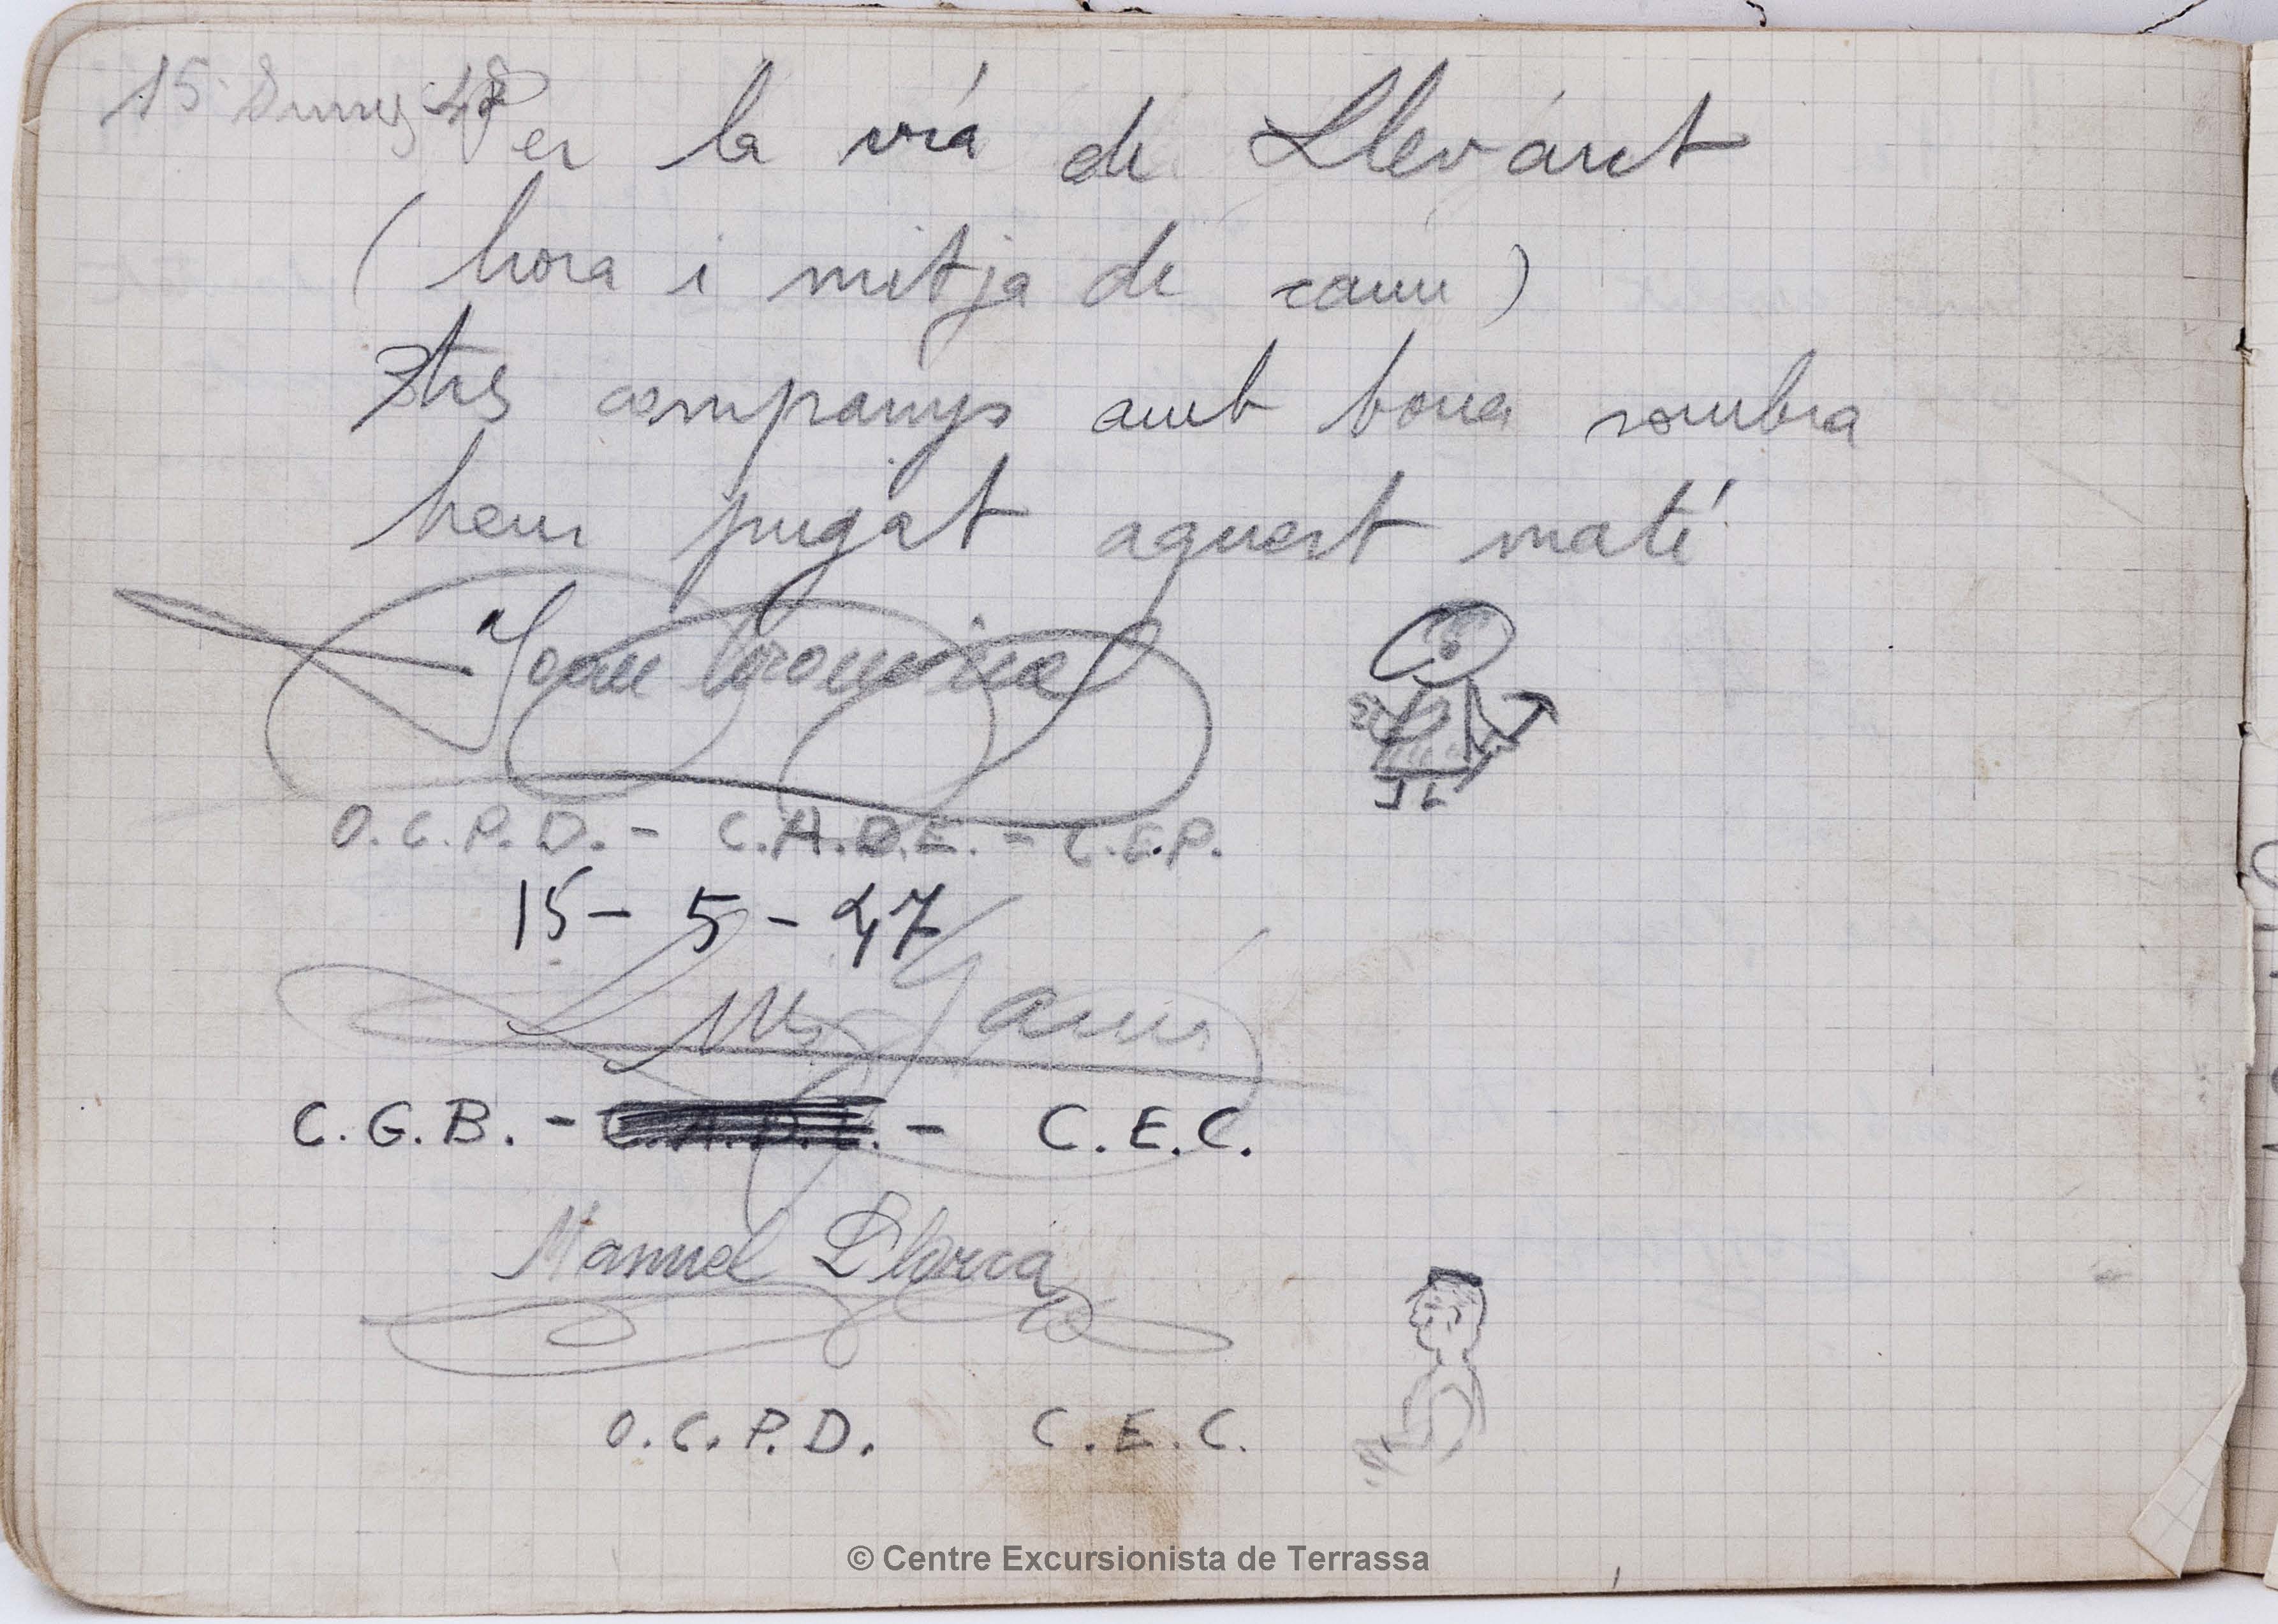 15
Per la vía de Llevánt
(hora i mitja de camí)
tres companys amb bona sombra
hem pugat aquest matí
Joan
O.C.P.D. - C.A.D.E. - C.E.P.
15 - 5 - 47
C.G.B. - - C.E.C.
Manuel Llorca
O.C.P.D. C.E.C.
© Centre Excursionista de Terrassa